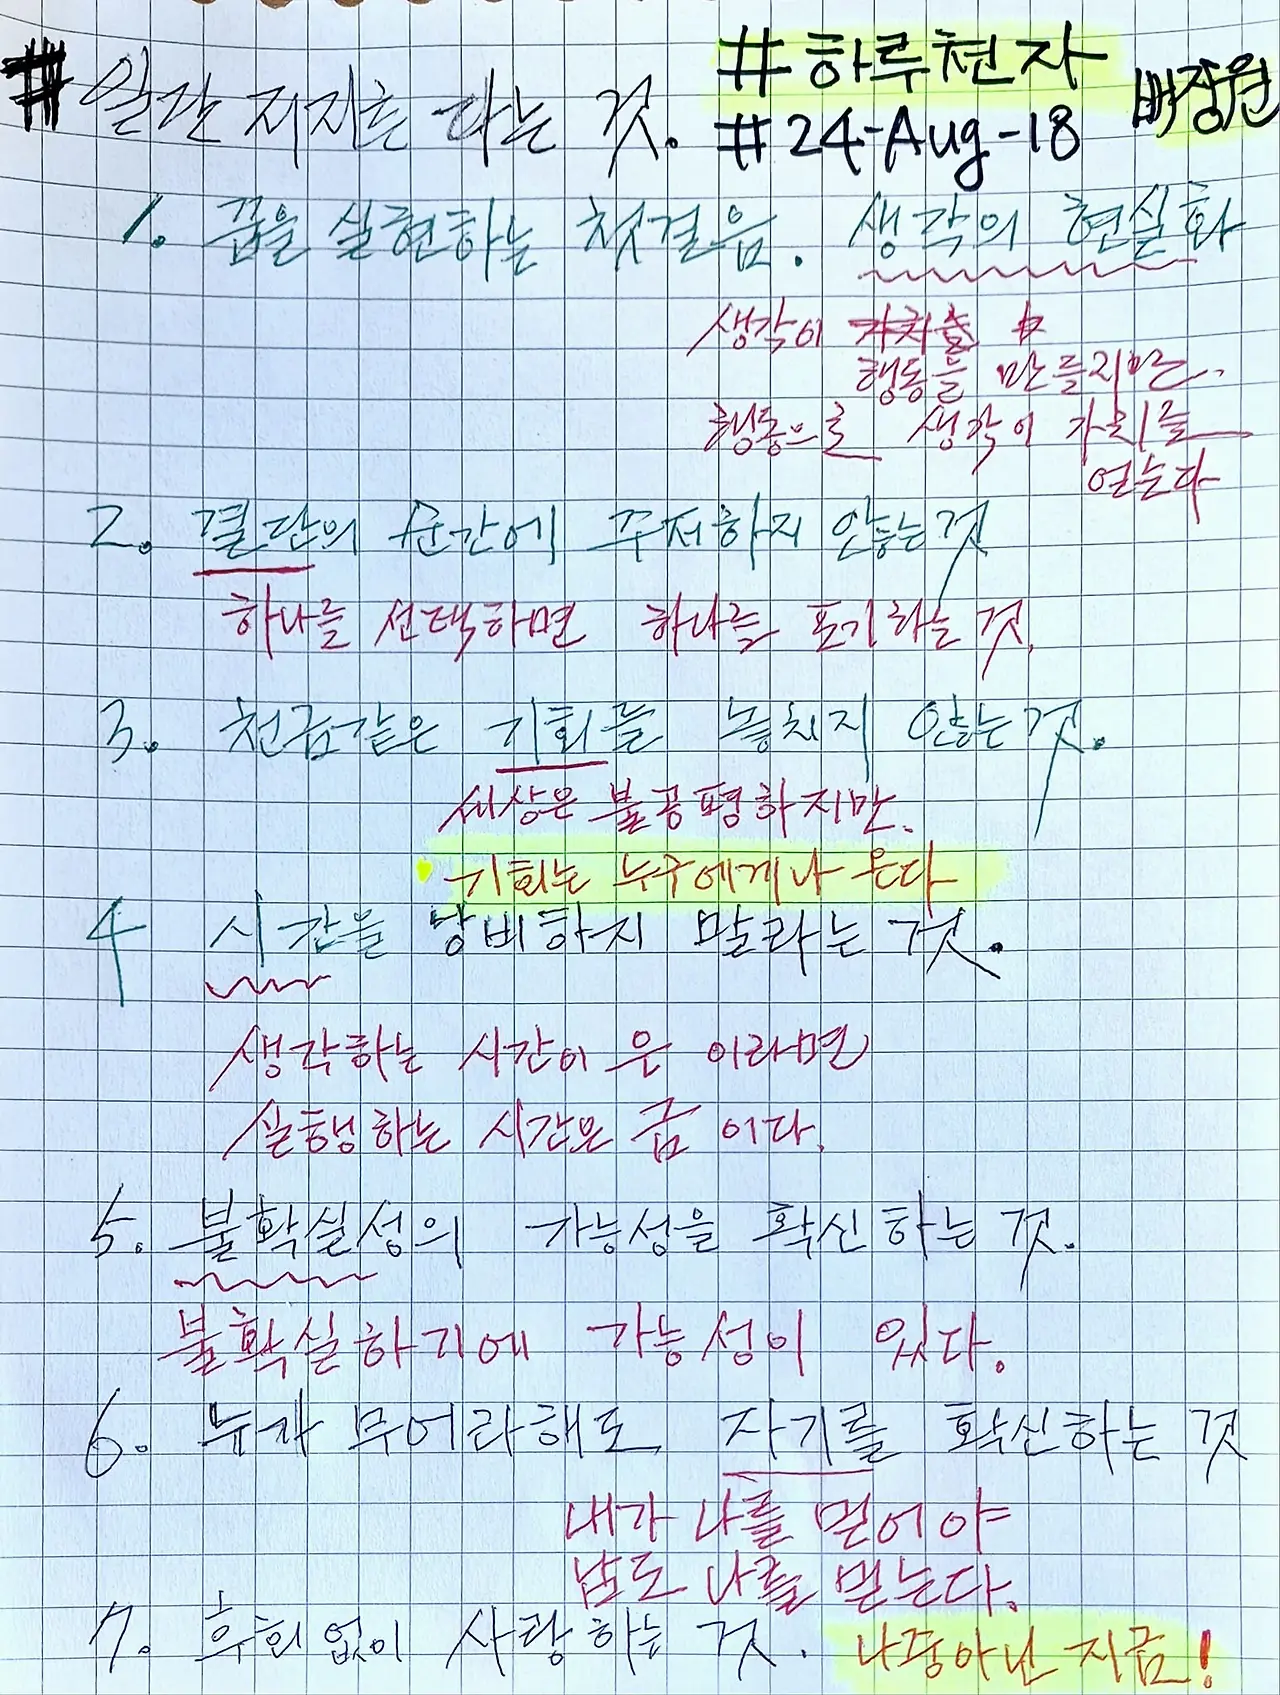 # 일단 저지른다는 것. #하루현자 배장원
#24-Aug-18
1. 꿈을 실현하는 첫걸음. 생각의 현실화
생각이
행동을 만들지만..
행동으로 생각이 가치를
얻는다
2. 결단의 순간에 주저하지 않는 것
하나를 선택하면 하나를 포기하는 것.
3. 천금같은 기회를 놓치지 않는 것.
세상은 불공평하지만.
기회는 누구에게나 온다
4 시간을 낭비하지 말라는 것.
생각하는 시간이 은 이라면
실행하는 시간은 금 이다.
5. 불확실성의 가능성을 확신하는 것.
불확실하기에 가능성이 있다.
6. 누가 무어라해도 자기를 확신하는 것
내가 나를 믿어야
남도 나를 믿는다.
7. 후회없이 사랑하는 것. 나중아닌 지금!